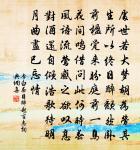 處世若大夢胡為勞其
生所以終日醉頹然臥
前楹覺來盼庭前一鳥
花間鳴借問此何時春
風語流鶯感之欲歎息
對酒還自傾浩歌待明
月曲盡已忘情
李白春日醉起言志